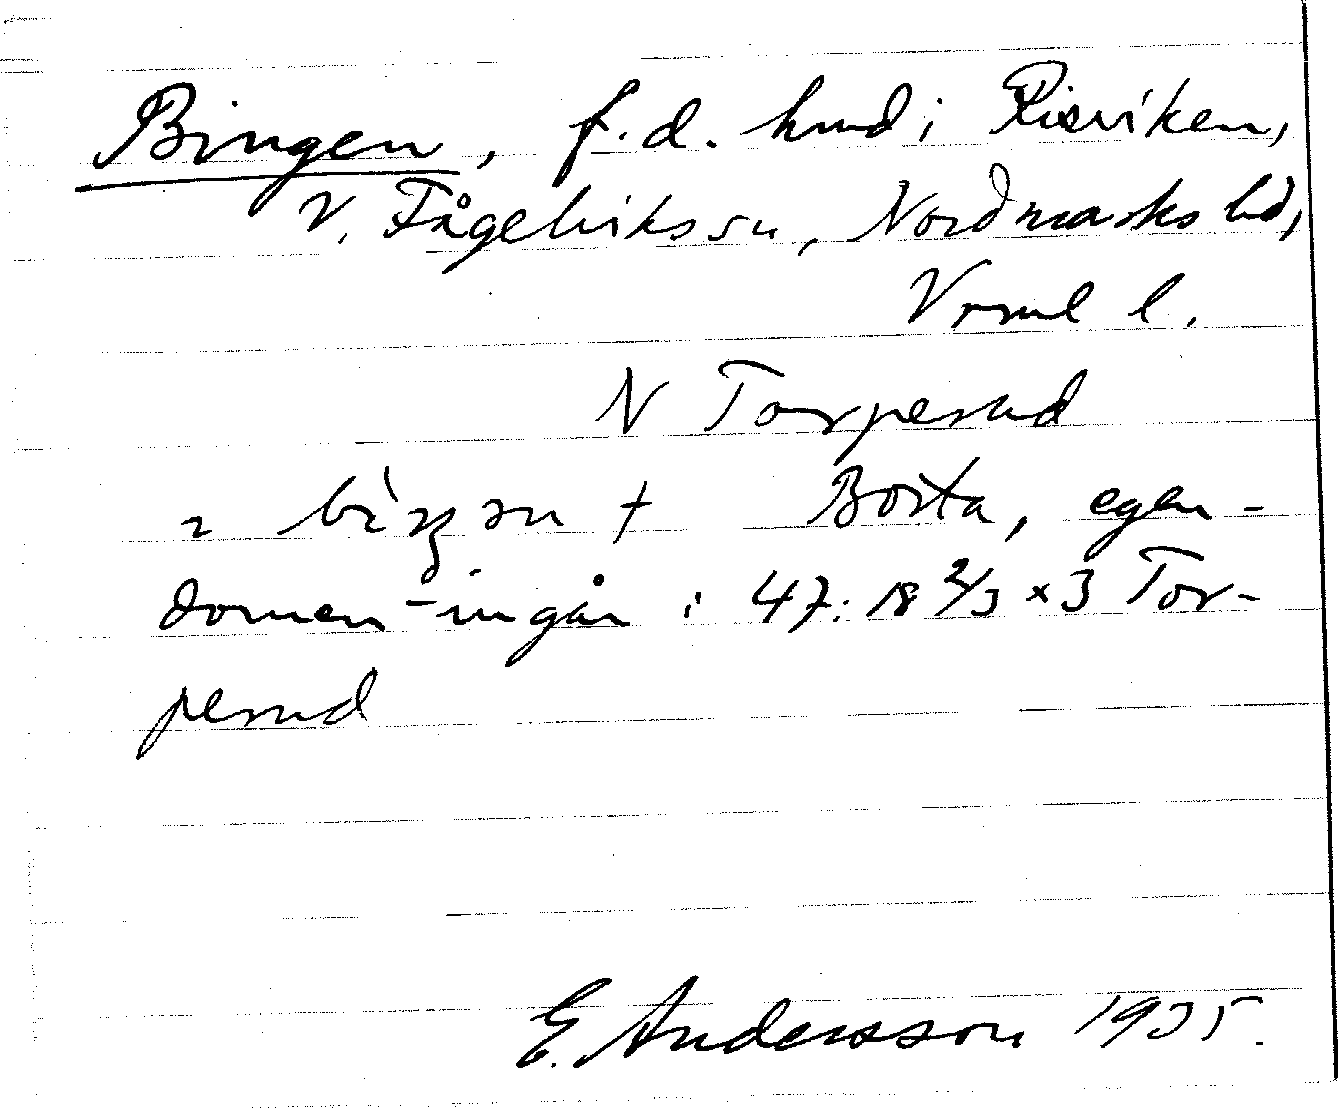 Bingen, f.d. hmd i Risviken,
V. Fågelvikssn, Nordmarks hd,
Vrml l.
N Torperud
Borta, egen-
domen ingår i 47: 18 2/3 × 3 Tor-
perud
E. Andersson 1935.